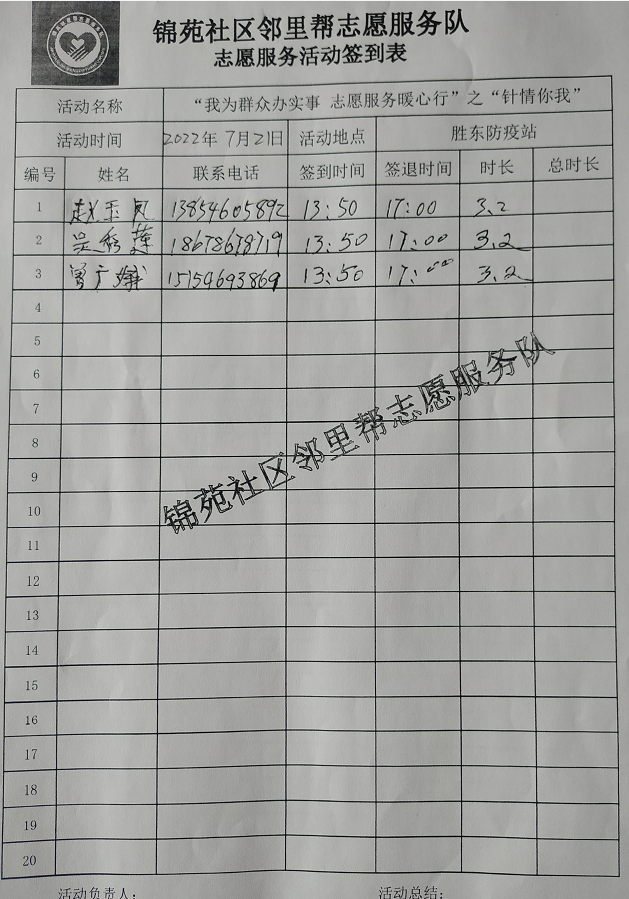 锦苑社区邻里帮志愿服务队
志愿服务活动签到表
活动名称 “我为群众办实事 志愿服务暖心行”之“针情你我”
活动时间 2022年7月21日 活动地点 胜东防疫站
编号 姓名 联系电话 签到时间 签退时间 时长 总时长
1 赵玉凤 13854605892 13:50 17:00 3.2
2 吴秀莲 18678678719 13:50 17:00 3.2
3 曾广娥 15154693869 13:50 17:00 3.2
4
5
6
7
8
9
10
11
12
13
14
15
16
17
18
19
20
锦苑社区邻里帮志愿服务队
活动负责人: 活动总结: